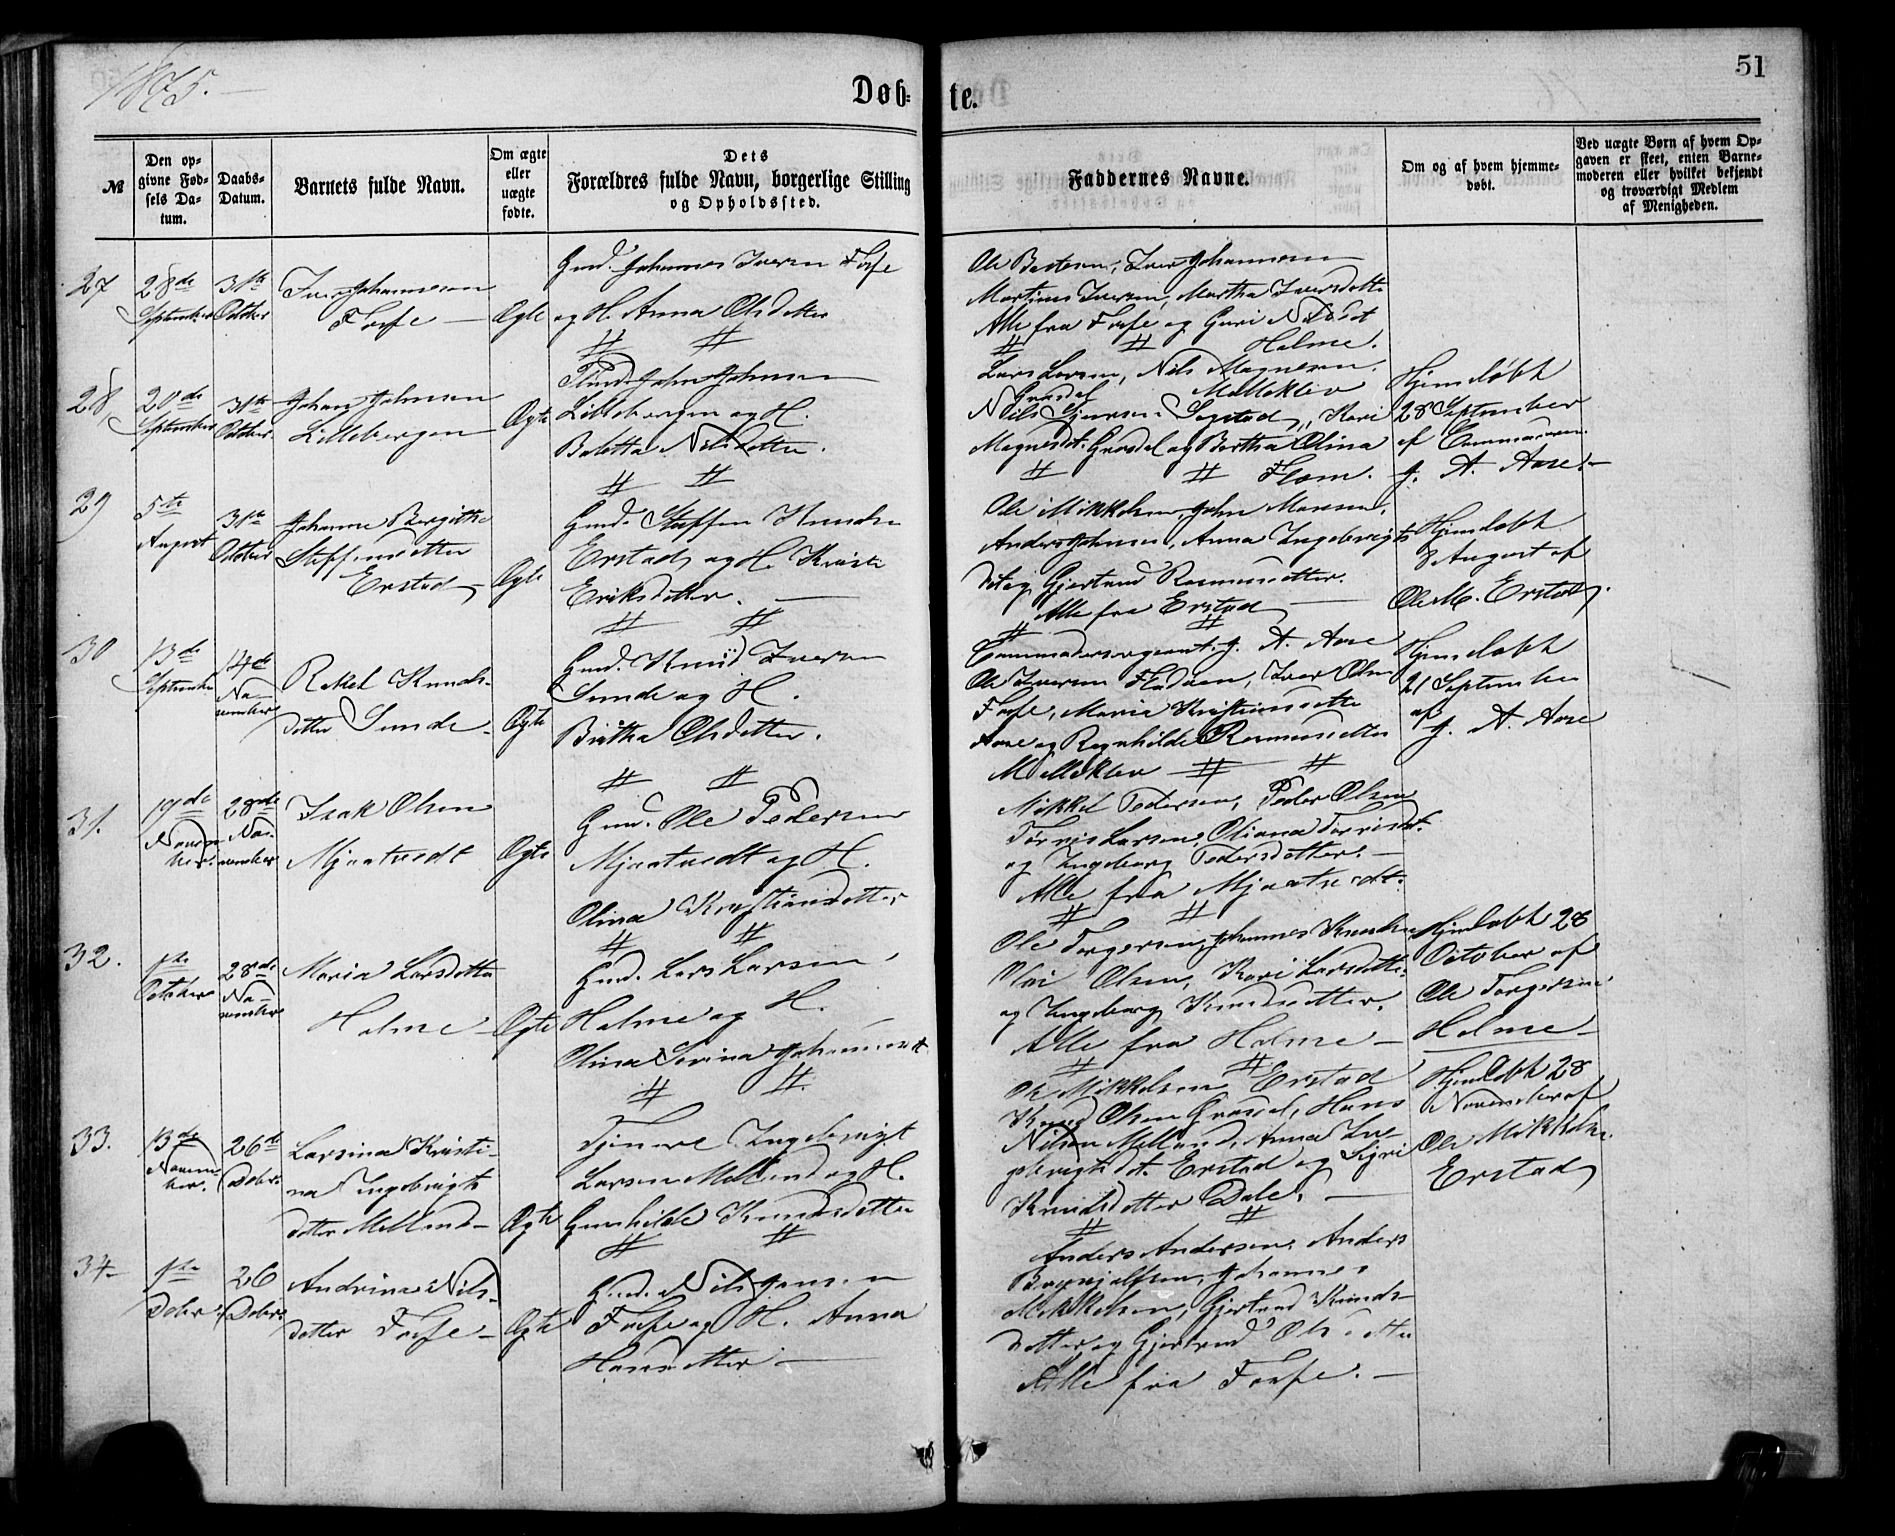 1875.
Døb-
te.
51
№
Den opgivne Fødsels Datum.
Daabs-Datum.
Barnets fulde Navn.
Om ægte eller uægte fødte.
Dets Forældres fulde Navn, borgerlige Stilling og Opholdssted.
Faddernes Navne.
Om og af hvem hjemmedøbt.
Ved uægte Børn af hvem Opgaven er skeet, enten Barnemoderen eller hvilket bekjendt og troværdigt Medlem af Menigheden.
27
28de September
31te October
Iver Johannesen
Fosse
Ægte
Gmd. Johannes Iversen Fosse
og H. Anna Olsdatter
Iver Johannesen
Martinus Iversen, Martha Iversdatter
Alle fra Fosse og Guri
Holme.
28
September
31te October
Johan Johnsen
Lillebergen
Ægte
John Johnsen
Lillebergen og H.
Nilsdatter.
Lars Larsen, Nils Magnesen
Melloklev
Nils
Kari
Magnesdt. og Bertha Olina
Flom.
Hjemdøbt
28 September
af
J. A. Aase.
29
5te August
31te October
Johanne Bergitha
Steffensdatter
Erstad
Ægte
Gmd. Steffen Knudsen
Erstad og H. Kristi
Eriksdatter.
Ole Mikkelsen, John Monsen,
Anders Johnsen, Anna Ingebrigts
dt. og Gjertrud Rasmusdatter.
Alle fra Erstad
Hjemdøbt
8 August af
Ole M. Erstad.
30
13de September
14de November
Rakel Knuds-
datter Sunde
Ægte
Gmd. Knud Iversen
Sunde og H.
Birtha Olsdatter.
J. A. Aase
Ole Iversen Iver Olsen
Fosse, Maria Kristiansdatter
Aase og Ragnhilde Rasmusdatter
Melloklev
Hjemdøbt
21 September
af
J. A. Aase
31.
19de November.
28de November
Isak Olsen
Mjaatvedt
Ægte
Gmd. Ole Pedersen
Mjaatvedt og H.
Olina Kristiansdatter
Mikkel Pedersen, Peder Olsen
Larsen, Oliana
og Ingeborg Pedersdatter.
Alle fra Mjaatvedt.
32.
1ste October
28de November
Maria Larsdatter
Holme
Ægte
Gmd. Lars Larsen
Holme og H.
Olina Serina Johannesdt.
Ole Torgersen, Johannes Knudsen
Olsen, Kari Larsdatter
og Ingeborg Knudsdatter.
Alle fra Holme
Hjemdøbt 28
October af
Ole Torgersen
Holme
33.
13de November.
26de Debr.
Larsina Kristi-
na Ingebrigts
datter Mellund
Ægte
Tjenere Ingebrigt
Larsen Mellund og H.
Gunhilde Knudsdatter
Ole Mikkelsen Erstad
Knud Olsen Hans
Nilsen Mellund, Anna Ing-
gebrigtsdt. Erstad og Sigri
Knudsdatter Dale.
Hjemdøbt 28
November af
Ole Mikkelsen
Erstad
34
1ste Debr.
26 Debr.
Andrina Nils-
datter Fosse
Ægte
Gmd. Nils Jensen
Fosse og H. Anna
Hansdatter
Anders Andersen, Anders
Johannes
Mikkelsen, Gjertrud Knuds-
datter og Gjertrud Olsdatter
Alle fra Fosse.